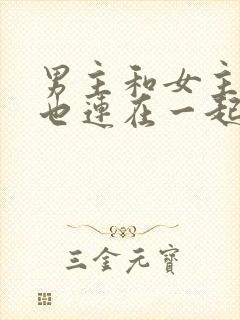 男主和女主
也连在一起
三金元寶